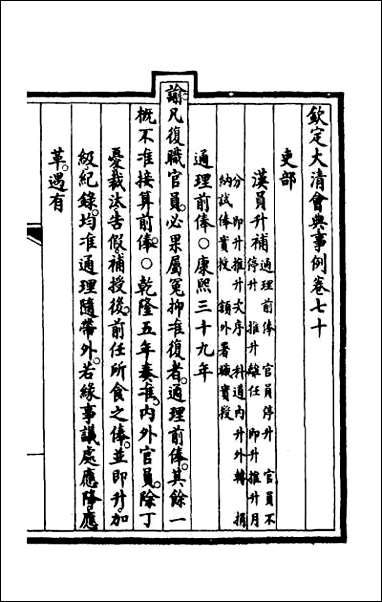 欽定大清會典事例卷七十
吏部
漢員升補通理前俸 官員停升 官員不
停升 推升離任 即升推升月
分 即升推升次序 科道內升外轉 捐
納試俸實授 額外署職實授
通理前俸○康熙三十九年
諭凡復職官員必果屬冤抑准復者通理前俸其餘一
概不准接算前俸○乾隆五年奏准內外官員除丁
憂裁汰告假補授後前任所食之俸並即升加
級紀錄均准通理隨帶外若緣事議處應降應
革遇有